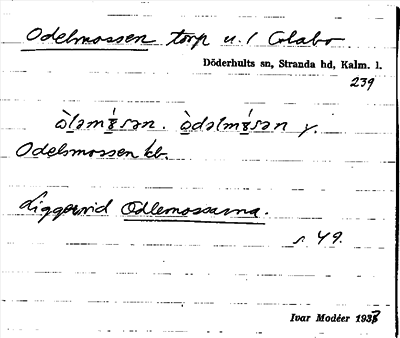 Odelmossen torp u. / Colabo
Döderhults sn, Stranda hd, Kalm. l.
239
òləmɤ́sən. òdəlmɤ́sən y.
Odelsmossen kb.
Ligger vid Odlemossarna.
s. 49.
Ivar Modéer 1933